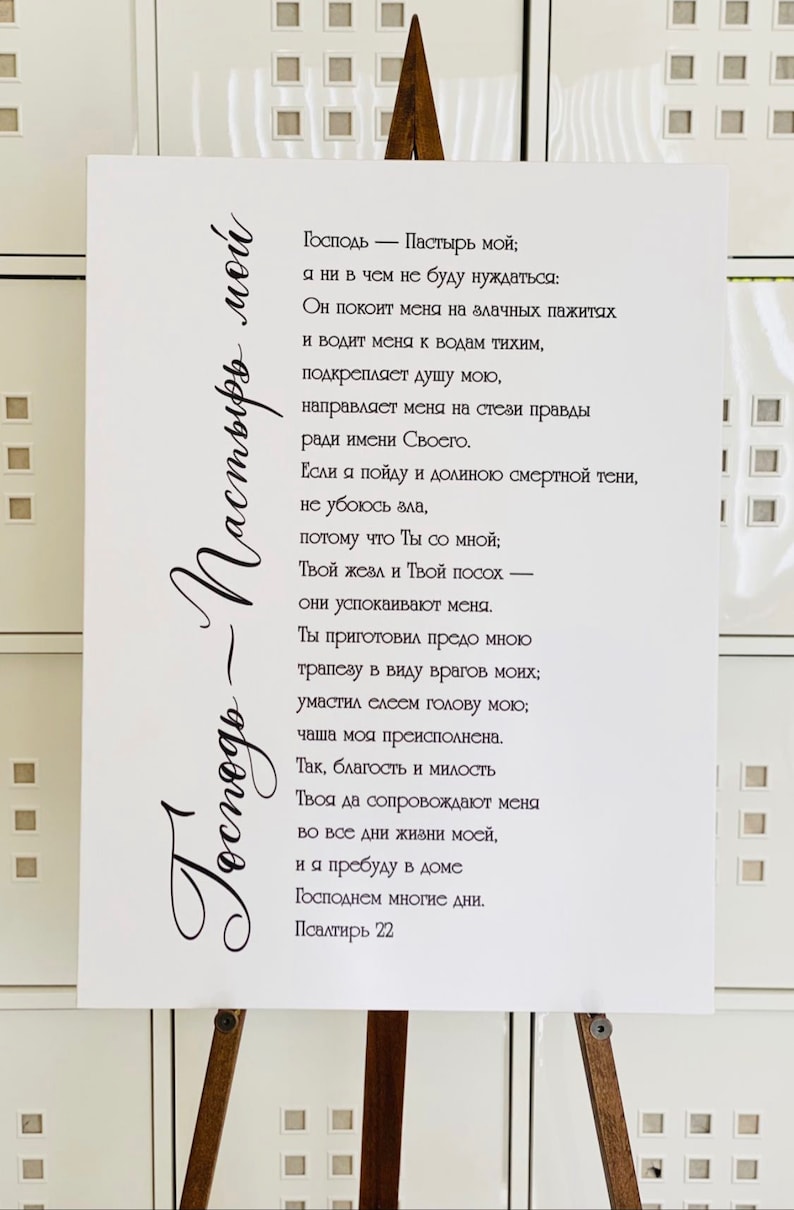 Господь — Пастырь мой
Господь — Пастырь мой;
я ни в чем не буду нуждаться:
Он покоит меня на злачных пажитях
и водит меня к водам тихим,
подкрепляет душу мою,
направляет меня на стези правды
ради имени Своего.
Если я пойду и долиною смертной тени,
не убоюсь зла,
потому что Ты со мной;
Твой жезл и Твой посох —
они успокаивают меня.
Ты приготовил предо мною
трапезу в виду врагов моих;
умастил елеем голову мою;
чаша моя преисполнена.
Так, благость и милость
Твоя да сопровождают меня
во все дни жизни моей,
и я пребуду в доме
Господнем многие дни.
Псалтирь 22